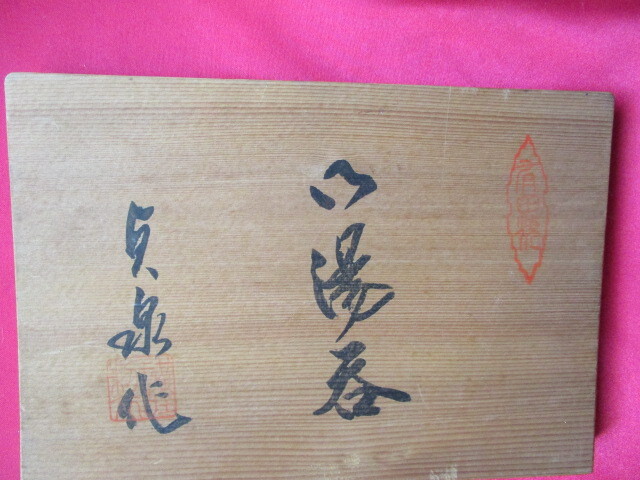 御湯呑
貞泉作